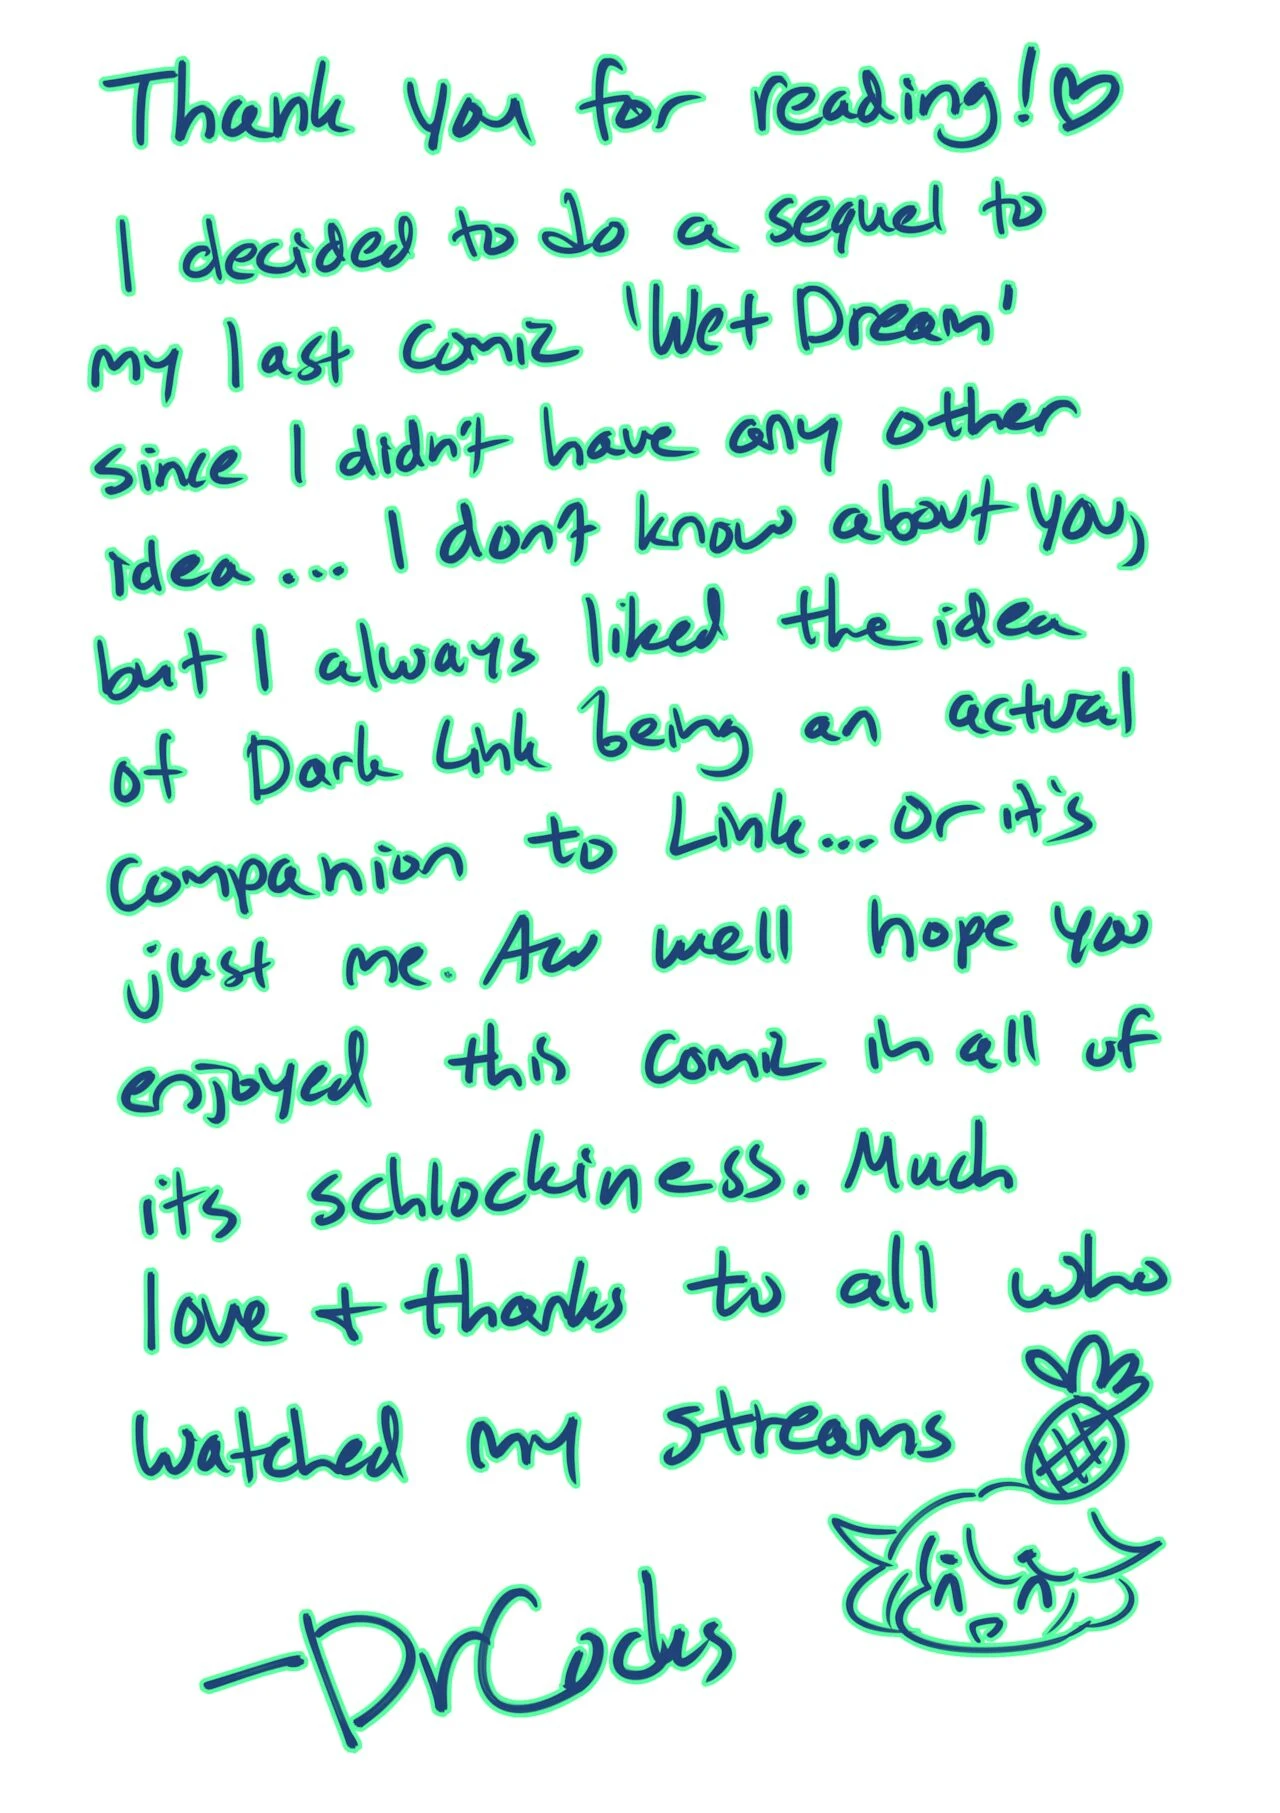 Thank you for reading! ♡
I decided to do a sequel to
my last comic 'Wet Dream'
since I didn't have any other
idea... I don't know about you,
but I always liked the idea
of Dark Link being an actual
companion to Link... or it's
just me. Aw well hope you
enjoyed this comic in all of
its schlockiness. Much
love + thanks to all who
watched my streams
-DrCockus